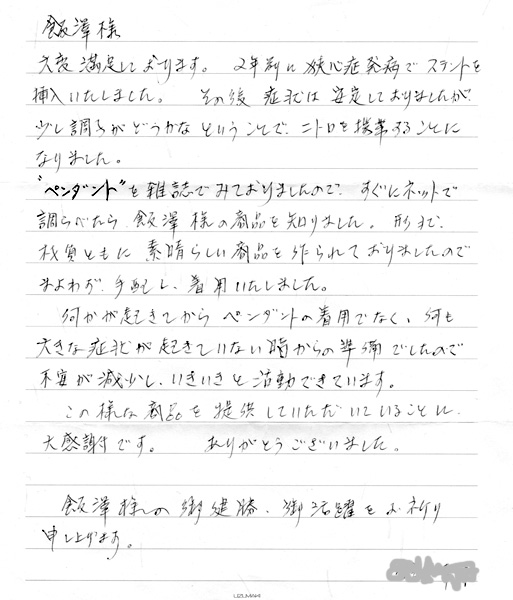 飯澤様
大変満足しております。 2年前に狭心症発病でステントを
挿入いたしました。 その後 症状は安定しておりましたが、
少し調子がどうかなということで、ニトロを携帯することに
なりました。
"ペンダント"を雑誌でみておりましたので、すぐにネットで
調らべたら 飯澤様の商品を知りました。 形状、
材質ともに 素晴らしい商品を作られておりましたので
まよわず、手配し、着用いたしました。
何かが起きてから ペンダントの着用でなく、何も
大きな症状が起きていない時からの準備でしたので
不安が減少し、いきいきと活動できています。
この様な商品を提供していただいていることに、
大感謝です。 ありがとうございました。
飯澤様の御健勝、御活躍をお祈り
申し上げます。
UZUMAKI